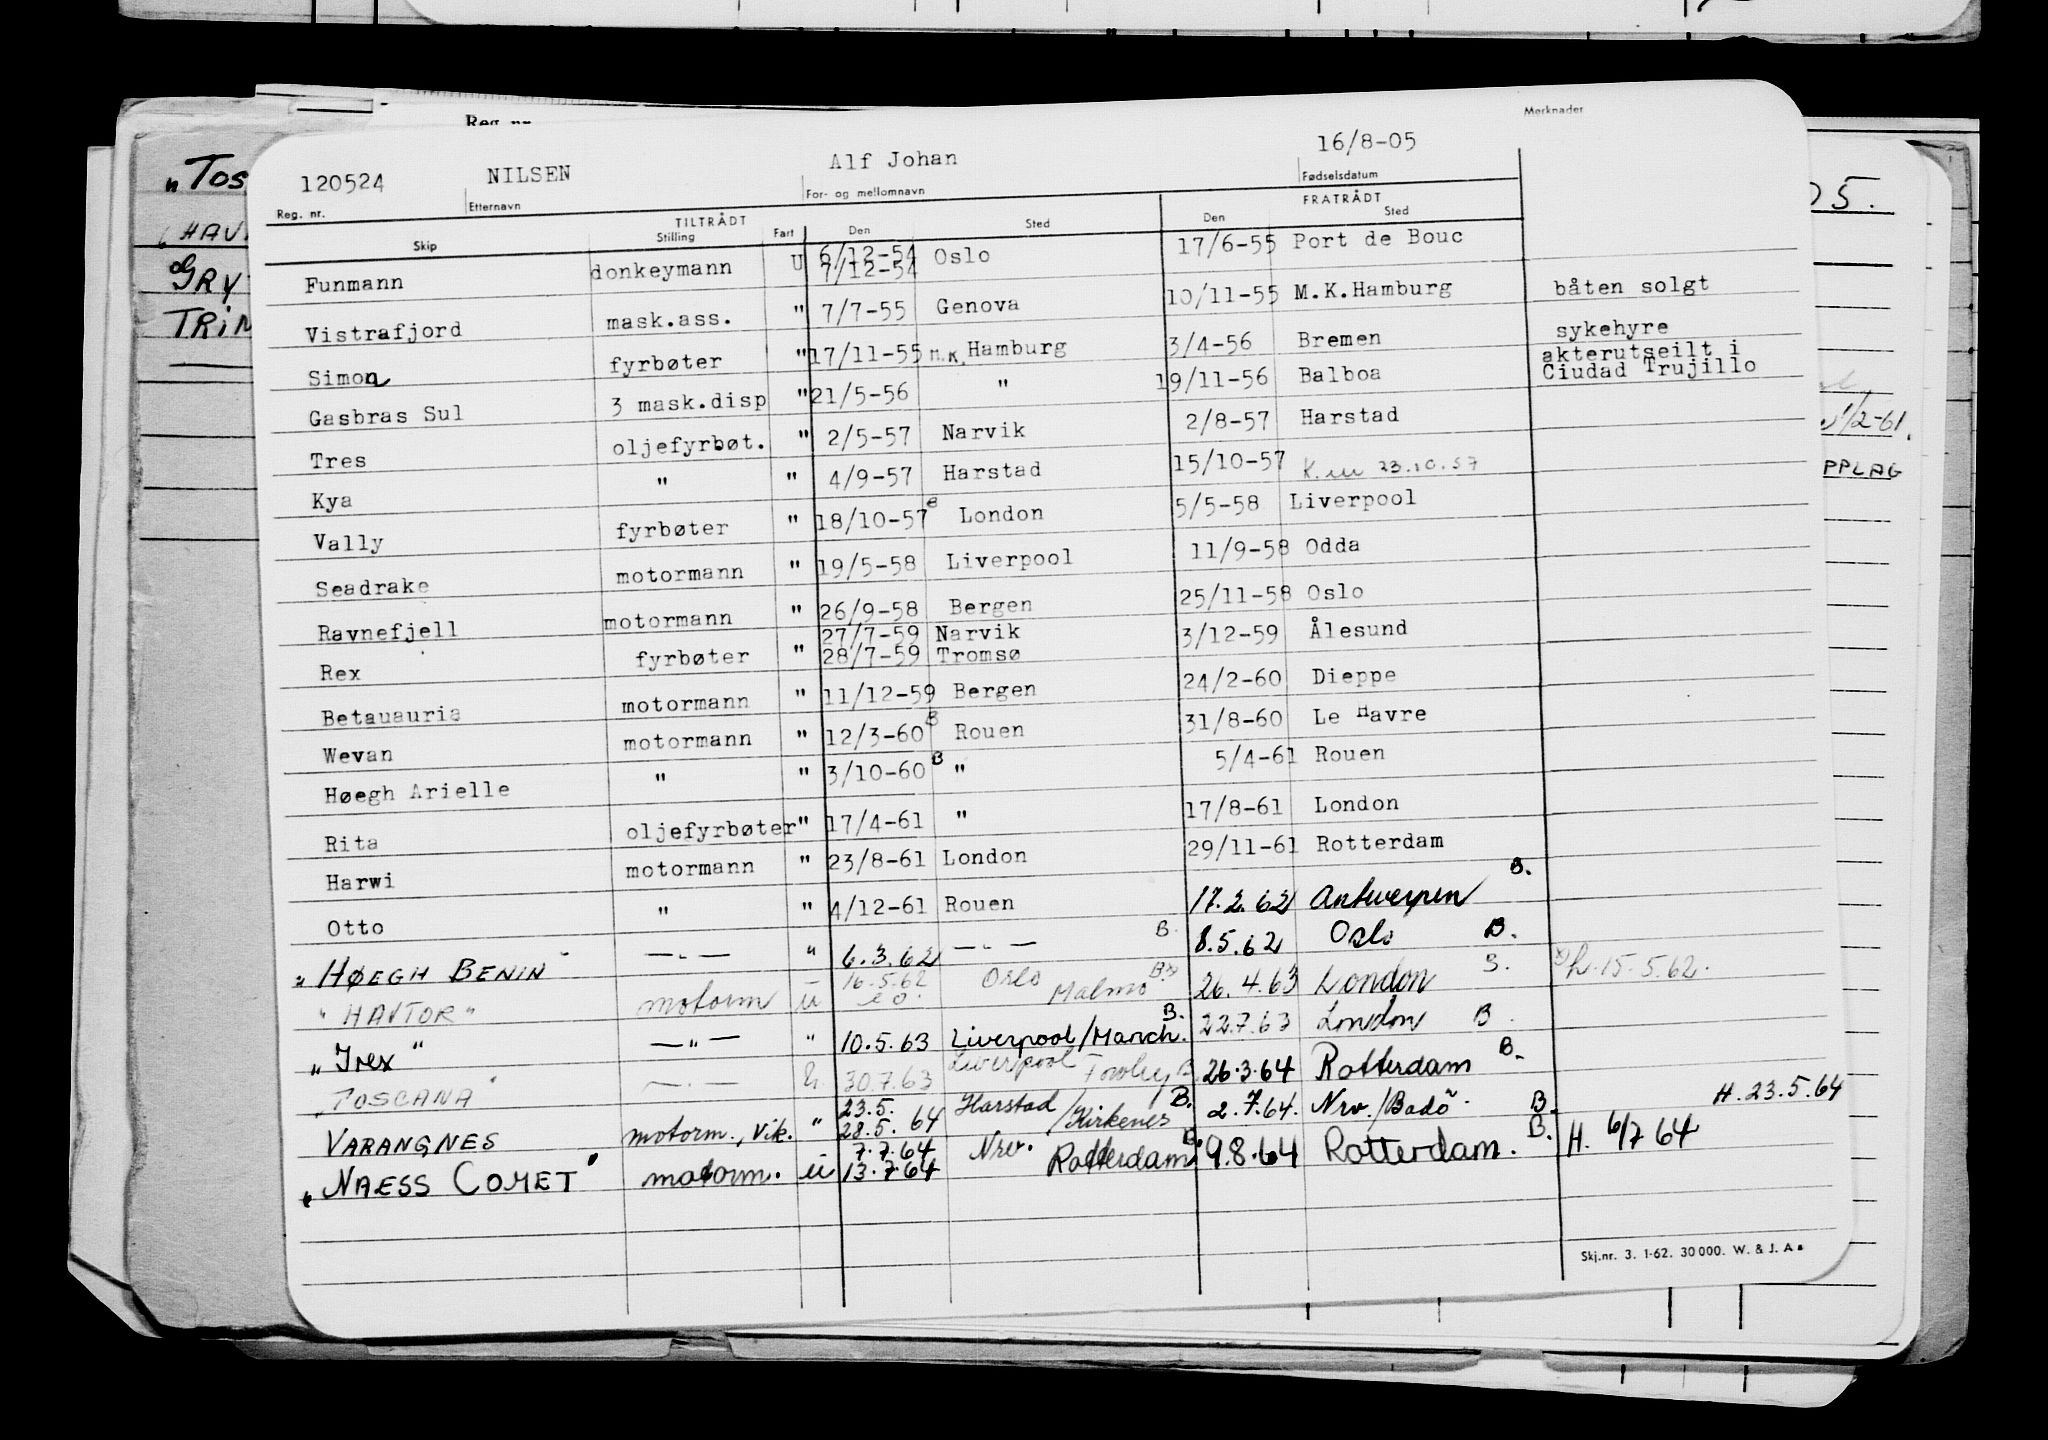 Reg. nr.
Merknader
120524 NILSEN Alf Johan 16/8-05
Reg. nr. Etternavn For- og mellomnavn Fødselsdatum
TILTRÅDT FRATRÅDT
Skip Stilling Fart Den Sted Den Sted
Funmann donkeymann U 6/12-54 7/12-54 Oslo 17/6-55 Port de Bouc
Vistrafjord mask.ass. " 7/7-55 Genova 10/11-55 M.K.Hamburg båten solgt
Simon fyrbøter " 17/11-55 M.K. Hamburg 3/4-56 Bremen sykehyre
Gasbras Sul 3 mask.disp " 21/5-56 " 19/11-56 Balboa akterutseilt i Ciudad Trujillo
Tres oljefyrbøt. " 2/5-57 Narvik 2/8-57 Harstad
Kya " " 4/9-57 Harstad 15/10-57 K. 23.10.57
Vally fyrbøter " 18/10-57 e London 5/5-58 Liverpool
Seadrake motormann " 19/5-58 Liverpool 11/9-58 Odda
Ravnefjell motormann " 26/9-58 Bergen 25/11-58 Oslo
Rex fyrbøter " 27/7-59 28/7-59 Narvik Tromsø 3/12-59 Ålesund
Betauauria motormann " 11/12-59 Bergen 24/2-60 Dieppe
Wevan motormann " 12/3-60 B Rouen 31/8-60 Le Havre
Høegh Arielle " " 3/10-60 B " 5/4-61 Rouen
Rita oljefyrbøter " 17/4-61 " 17/8-61 London
Harwi motormann " 23/8-61 London 29/11-61 Rotterdam
Otto " " 4/12-61 Rouen 17.2.62 Antwerpen B.
" HØEGH BENIN " —"— " 6.3.62 —"— B. 8.5.62 Oslo B.
" HAVTOR " motorm ü 16.5.62 Oslo Malmø B x) 26.4.63 London B. x) h. 15.5.62.
" Irex " —"— " 10.5.63 Liverpool/Manch. B. 22.7.63 London B.
" TOSCANA " —"— ü 30.7.63 Liverpool Fowley B 26.3.64 Rotterdam B.
VARANGNES motorm., Vik. " 23.5. 28.5. 64 Harstad/Kirkenes B. 2.7.64. Nrv./Bodö B. H. 23.5.64
" NAESS COMET " motorm. ü 7.7.64 13.7.64 Nrv. Rotterdam B. 9.8.64 Rotterdam. B. H. 6/7 64
Skj.nr. 3. 1-62. 30 000. W. & J. A s
"TOS
"HAV
GRY
TRIN
05.
1/2-61.
PPLAG